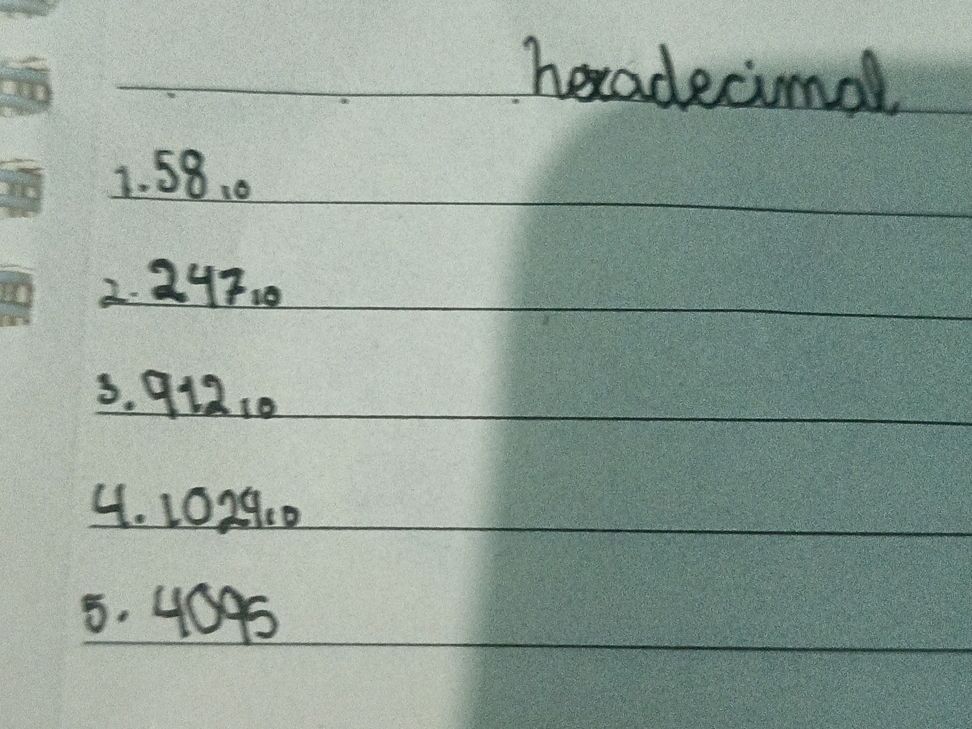 hexadecimal
1. 58₁₀
2. 247₁₀
3. 912₁₀
4. 1029₁₀
5. 4095